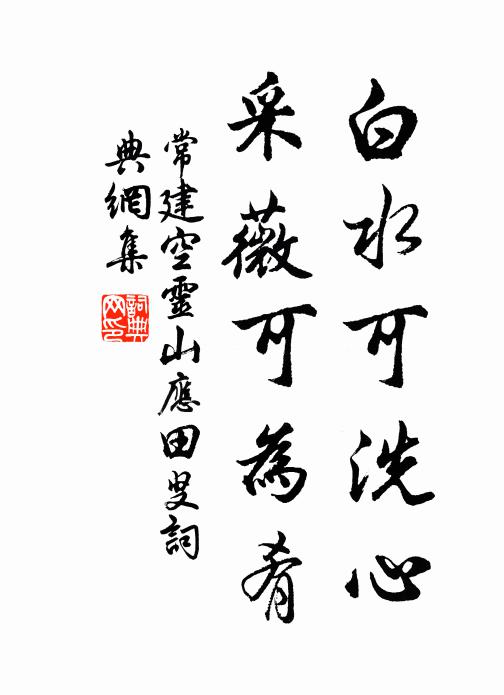 白水可洗心
采薇可為肴
常建空靈山應田叟詞
典網集
詞典
网印